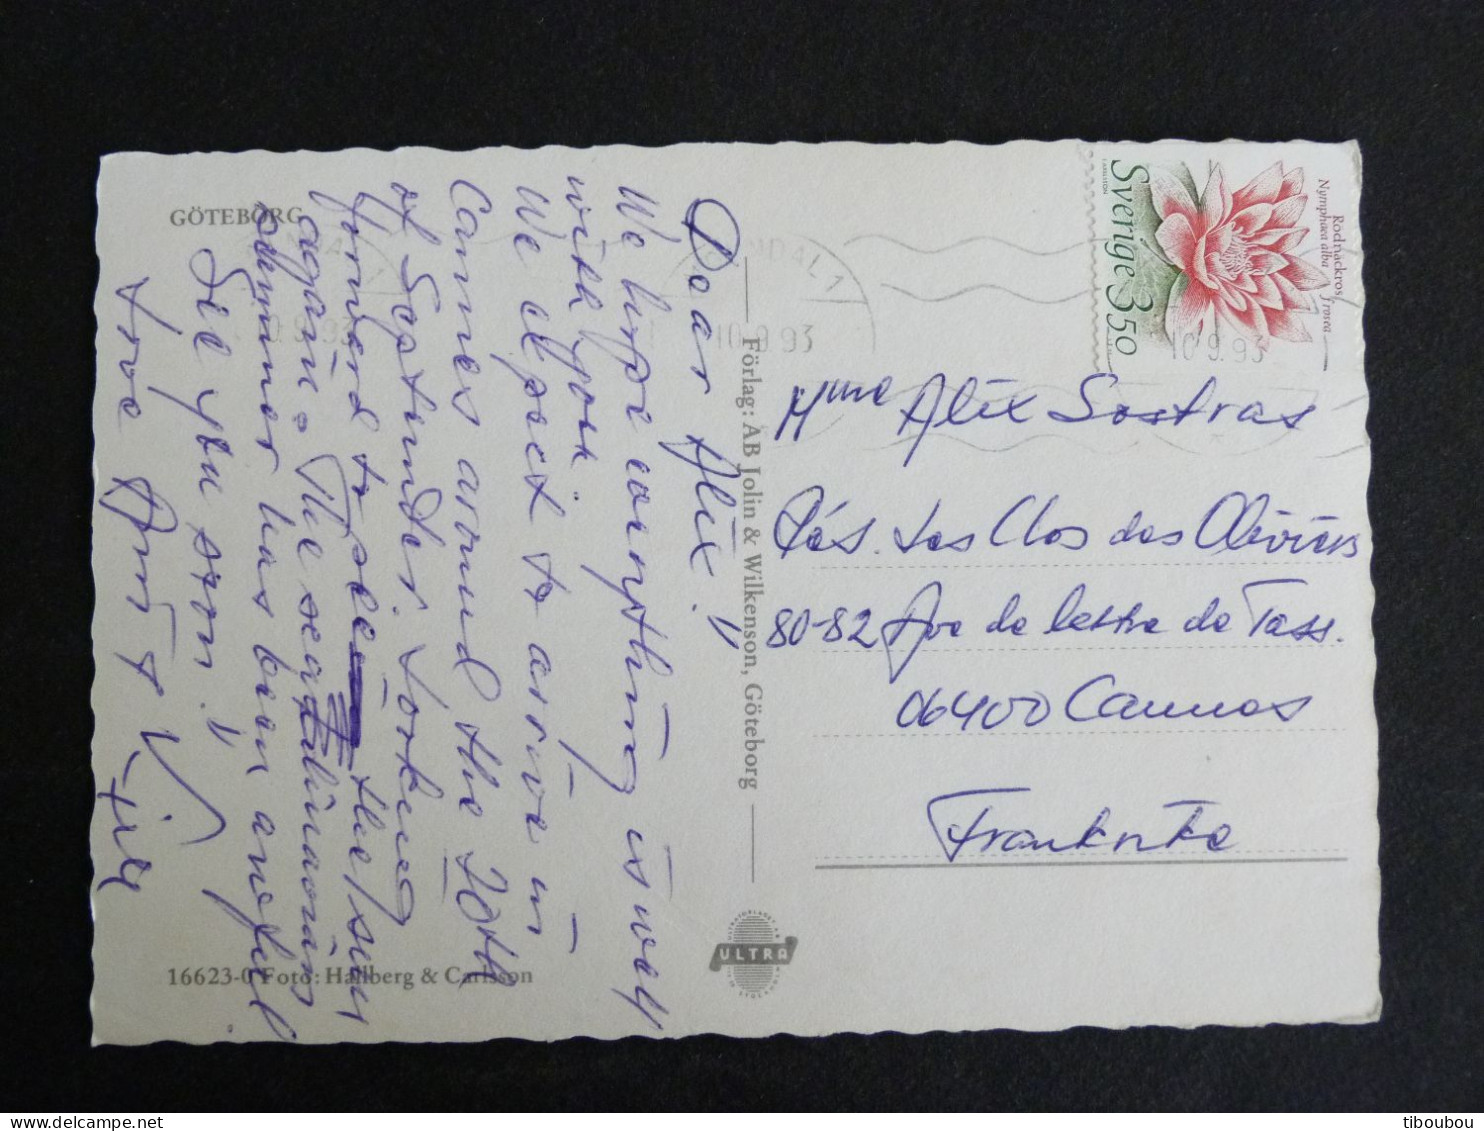 GÖTEBORG
Dear Alix!
We hope everything is well
with you.
We expect to arrive in
Cannes around the 20th
of September. Looking
forward to see the sun
again. The
summer has been awful.
See you soon!
Love
16623-0 Foto: Hallberg & Carlsson
Förlag: AB Jolin & Wilkenson, Göteborg
ULTRA
Sverige 3.50
Rödnäckros f rosea
Nymphaea alba
10.9.93
10.9.93
10.9.93
Mme Alix Sostras
Rés. Les Clos des Oliviers
80-82 Ave de lattre de Tass.
06400 Cannes
Frankrike
tiboubou